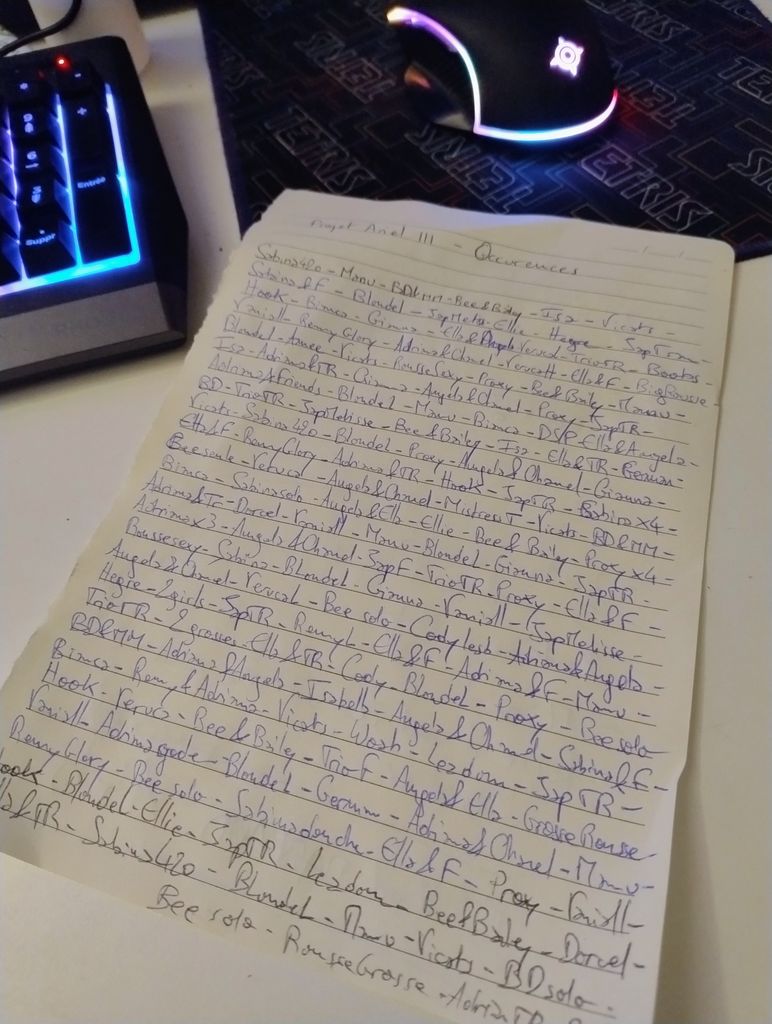 TETRIS
TETRIS
TETRIS
Entrée
Suppr
Projet Anal III - Occurences
Sabina420 - Manu - BD&MM - Bee&Bailey - Isa - Vicats -
Sabina&F - Blondel - Ellie - Hegre -
Hook - Bianca - Gianna - TrioTR - Boobs -
Vaniall - RemyGlory - Adriana&Chanel - Ella&F - BigRousse
Blondel - Aimee - Vicats - RousseSexy - Proxy - Bee&Bailey - Manu -
Isa - Adriana&TR - Gianna - Angela&Chanel - Proxy - JapTR -
Adriana&friends - Blondel - Manu - Bianca - DSP - Ella&Angela -
BD - TrioTR - JapMelisse - Bee&Bailey - Isa - Ella&TR - German -
Vicats - Sabina420 - Blondel - Proxy - Angela&Chanel - Gianna -
Ella&F - RemyGlory - Adriana&TR - Hook - JapTR - Sabina x4 -
Veruca - Angela&Chanel - MistressT - Vicats - BD&MM -
Bianca - Sabinasolo - Angela&Ella - Ellie - Bee&Bailey - Proxy x4 -
Adriana&Tr - Dorcel - Vaniall - Manu - Blondel - Gianna - JapTR -
Adriana x3 - Angela&Chanel - JapF - TrioTR - Proxy - Ella&F -
Roussesexy - Sabina - Blondel - Gianna - Vaniall - JapMelisse -
Angela&Chanel - Verucal - Bee solo - Codylesb - Adriana&Angela -
Hegre - 2girls - JapTR - RemyL - Ella&F - Adriana&F - Manu -
TrioTR - 2grosses - Ella&TR - Cody - Blondel - Proxy - Bee solo
BD&MM - Adriana&Angela - Isabella - Angela&Chanel - Sabina&F -
Bianca - Remy&Adriana - Vicats - Lezdom - JapTR -
Hook - Veruca - Bee&Bailey - TrioF - Angela&Ella - GrosseRousse
Vaniall - Adrianagode - Blondel - German - Adriana&Chanel - Manu -
RemyGlory - Bee solo - Sabinadouche - Ella&F - Proxy - Vaniall -
ook - Blondel - Ellie - JapTR - Lezdom - Bee&Bailey - Dorcel -
&TR - Sabina420 - Blondel - Manu - Vicats - BDsolo -
Bee solo - RousseGrosse -